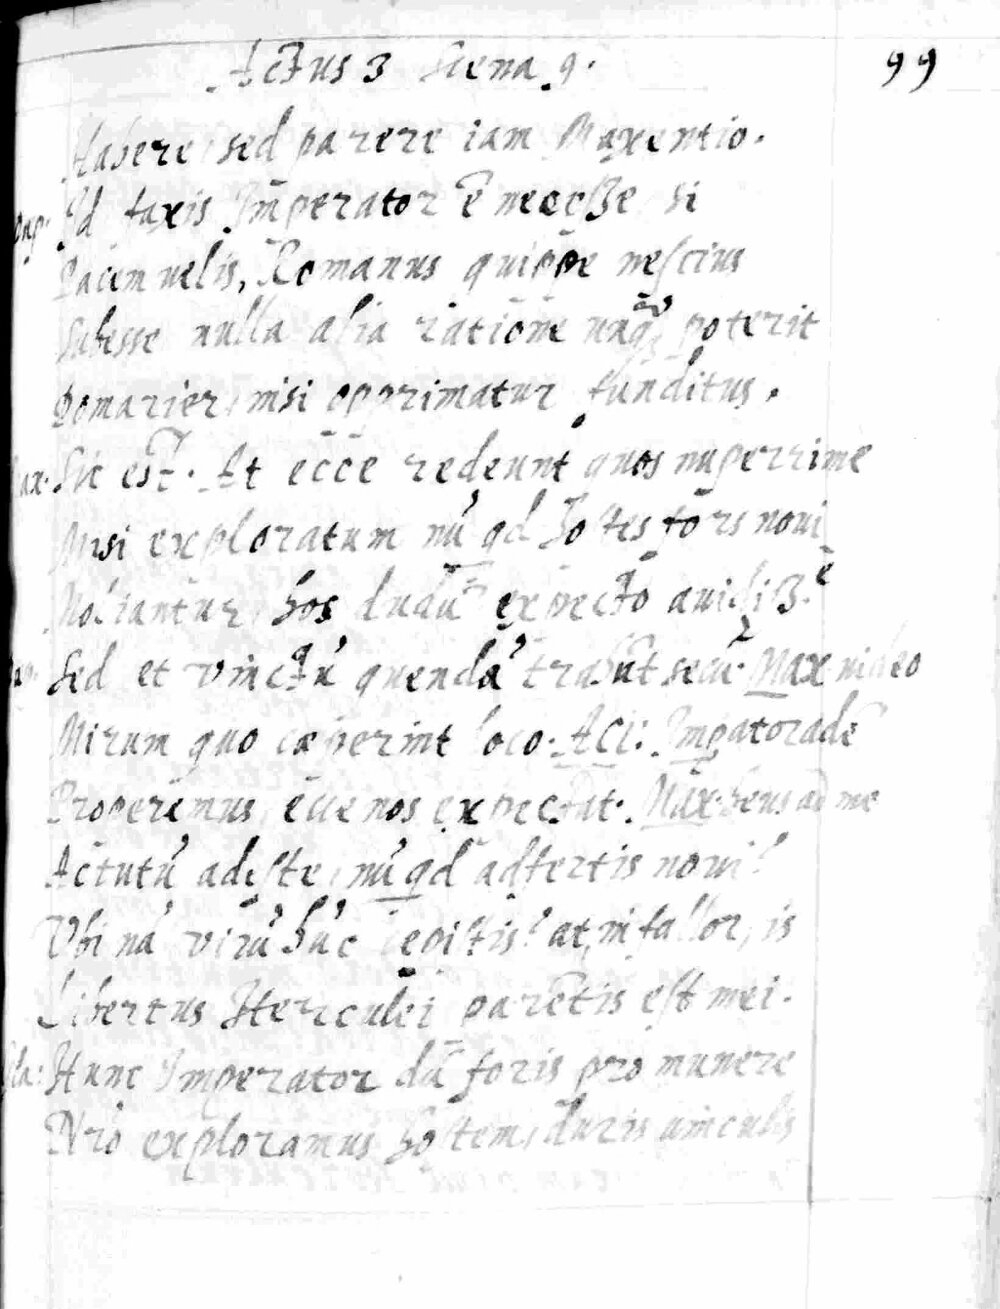 Actus 3 Scena 9. 99
Habere, sed parere iam Maxentio.
Id faxis Imperator ē neceße si
Pacem uelis, Romanus quippe nescius
Subesse nulla alia ratione unq̃ poterit
Domarier, nisi opprimatur funditus.
Sic est. At ecce redeunt quos nuperrime
Misi exploratum nũ qd hostes foris noui
Moliantur, hos dudũ expecto auidiß.e
Sed et vinctũ quendã trahũt secũ. Max uideo
Mirum quo cæperint loco. Aci: Imꝑator adē
Properemus, ecce nos expectat. Max. heus ad me
Actutũ adeste, nũ qd adfertis noui?
Ubi nã virũ hũc cepistis? at, ni fallor, is
Libertus Herculei parentis est mei.
Hunc Imperator dũ foris pro munere
Nr̃o exploramus hostem, duris uinculis